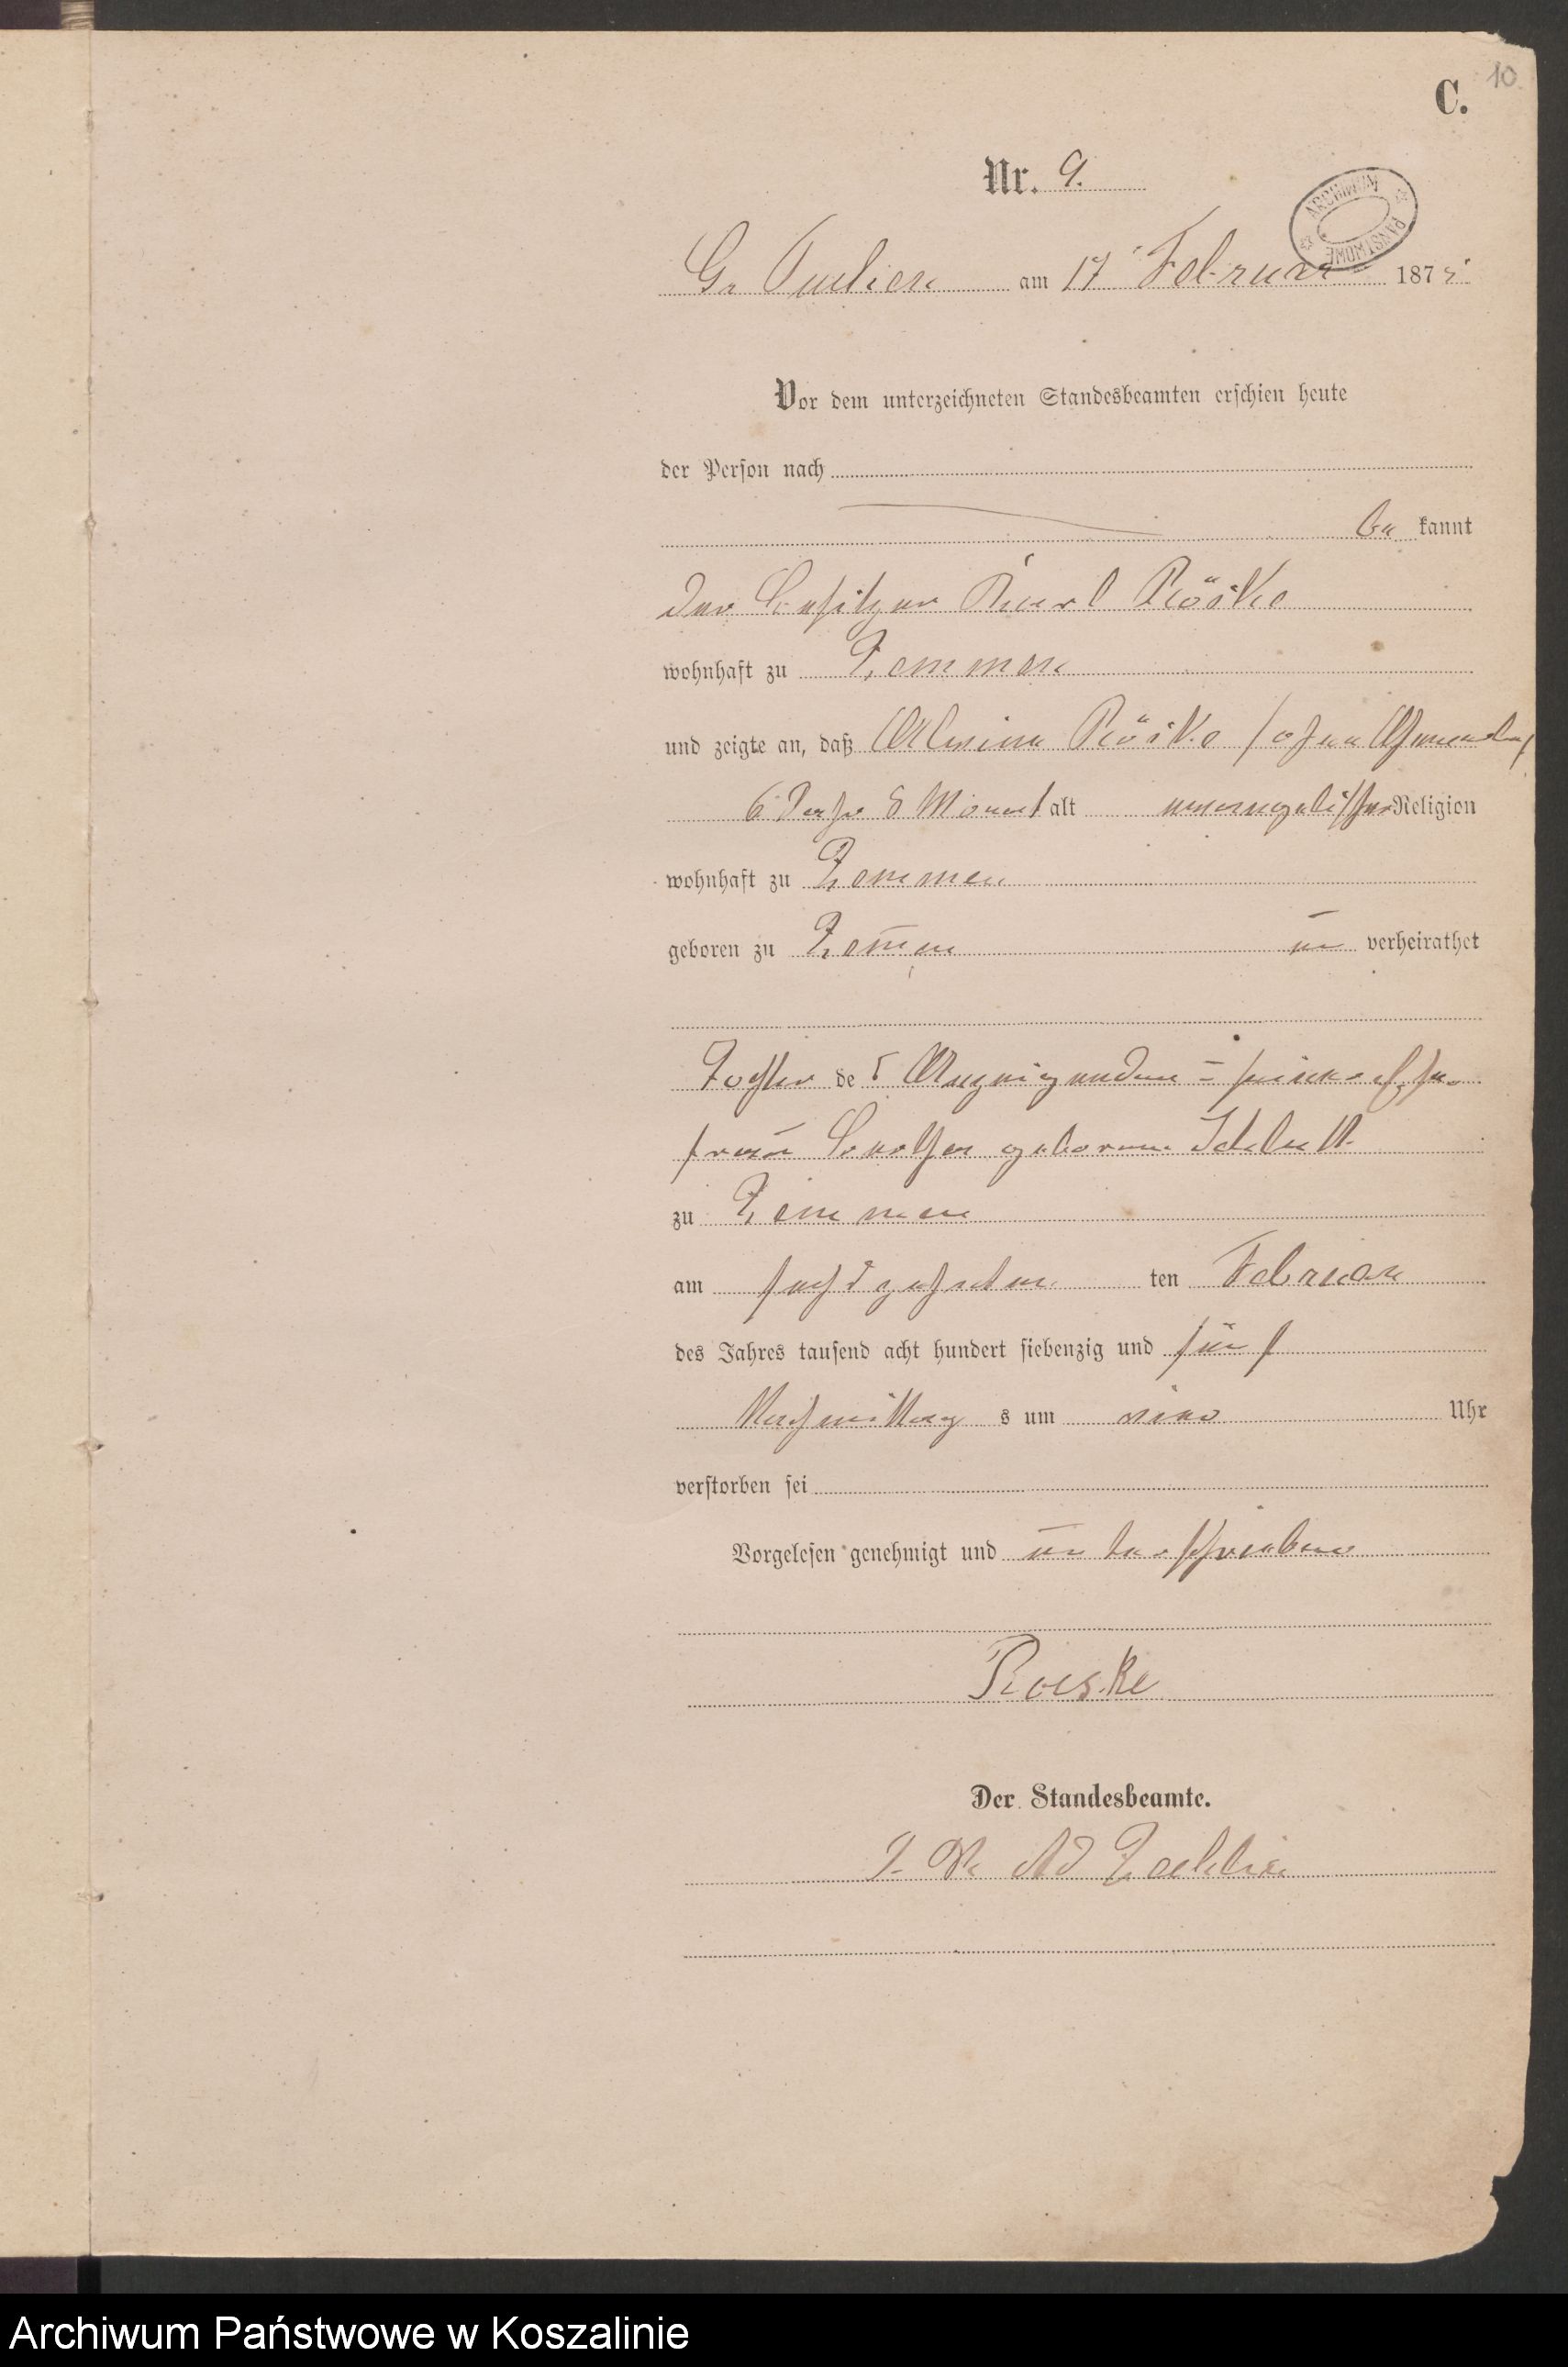 10
C.
Nr. 9.
ARCHIWUM PAŃSTWOWE
Gr Tuchen am 17 Februar 1875
Vor dem unterzeichneten Standesbeamten erschien heute
der Person nach
be kannt
der Besitzer Karl Röske
wohnhaft zu Zemmen
und zeigte an, daß Albine Röske / ohne
6 Jahr 8 Monat alt evangelischer Religion
wohnhaft zu Zemmen
geboren zu Zem̄en un verheirathet
Tochter des Anzeigenden u seiner Ehe
frau geborene
zu Zemmen
am sechszehnten ten Februar
des Jahres tausend acht hundert siebenzig und fünf
Nachmittag s um vier Uhr
verstorben sei
Vorgelesen genehmigt und unterschrieben
Roeske
Der Standesbeamte.
I. V.
Archiwum Państwowe w Koszalinie